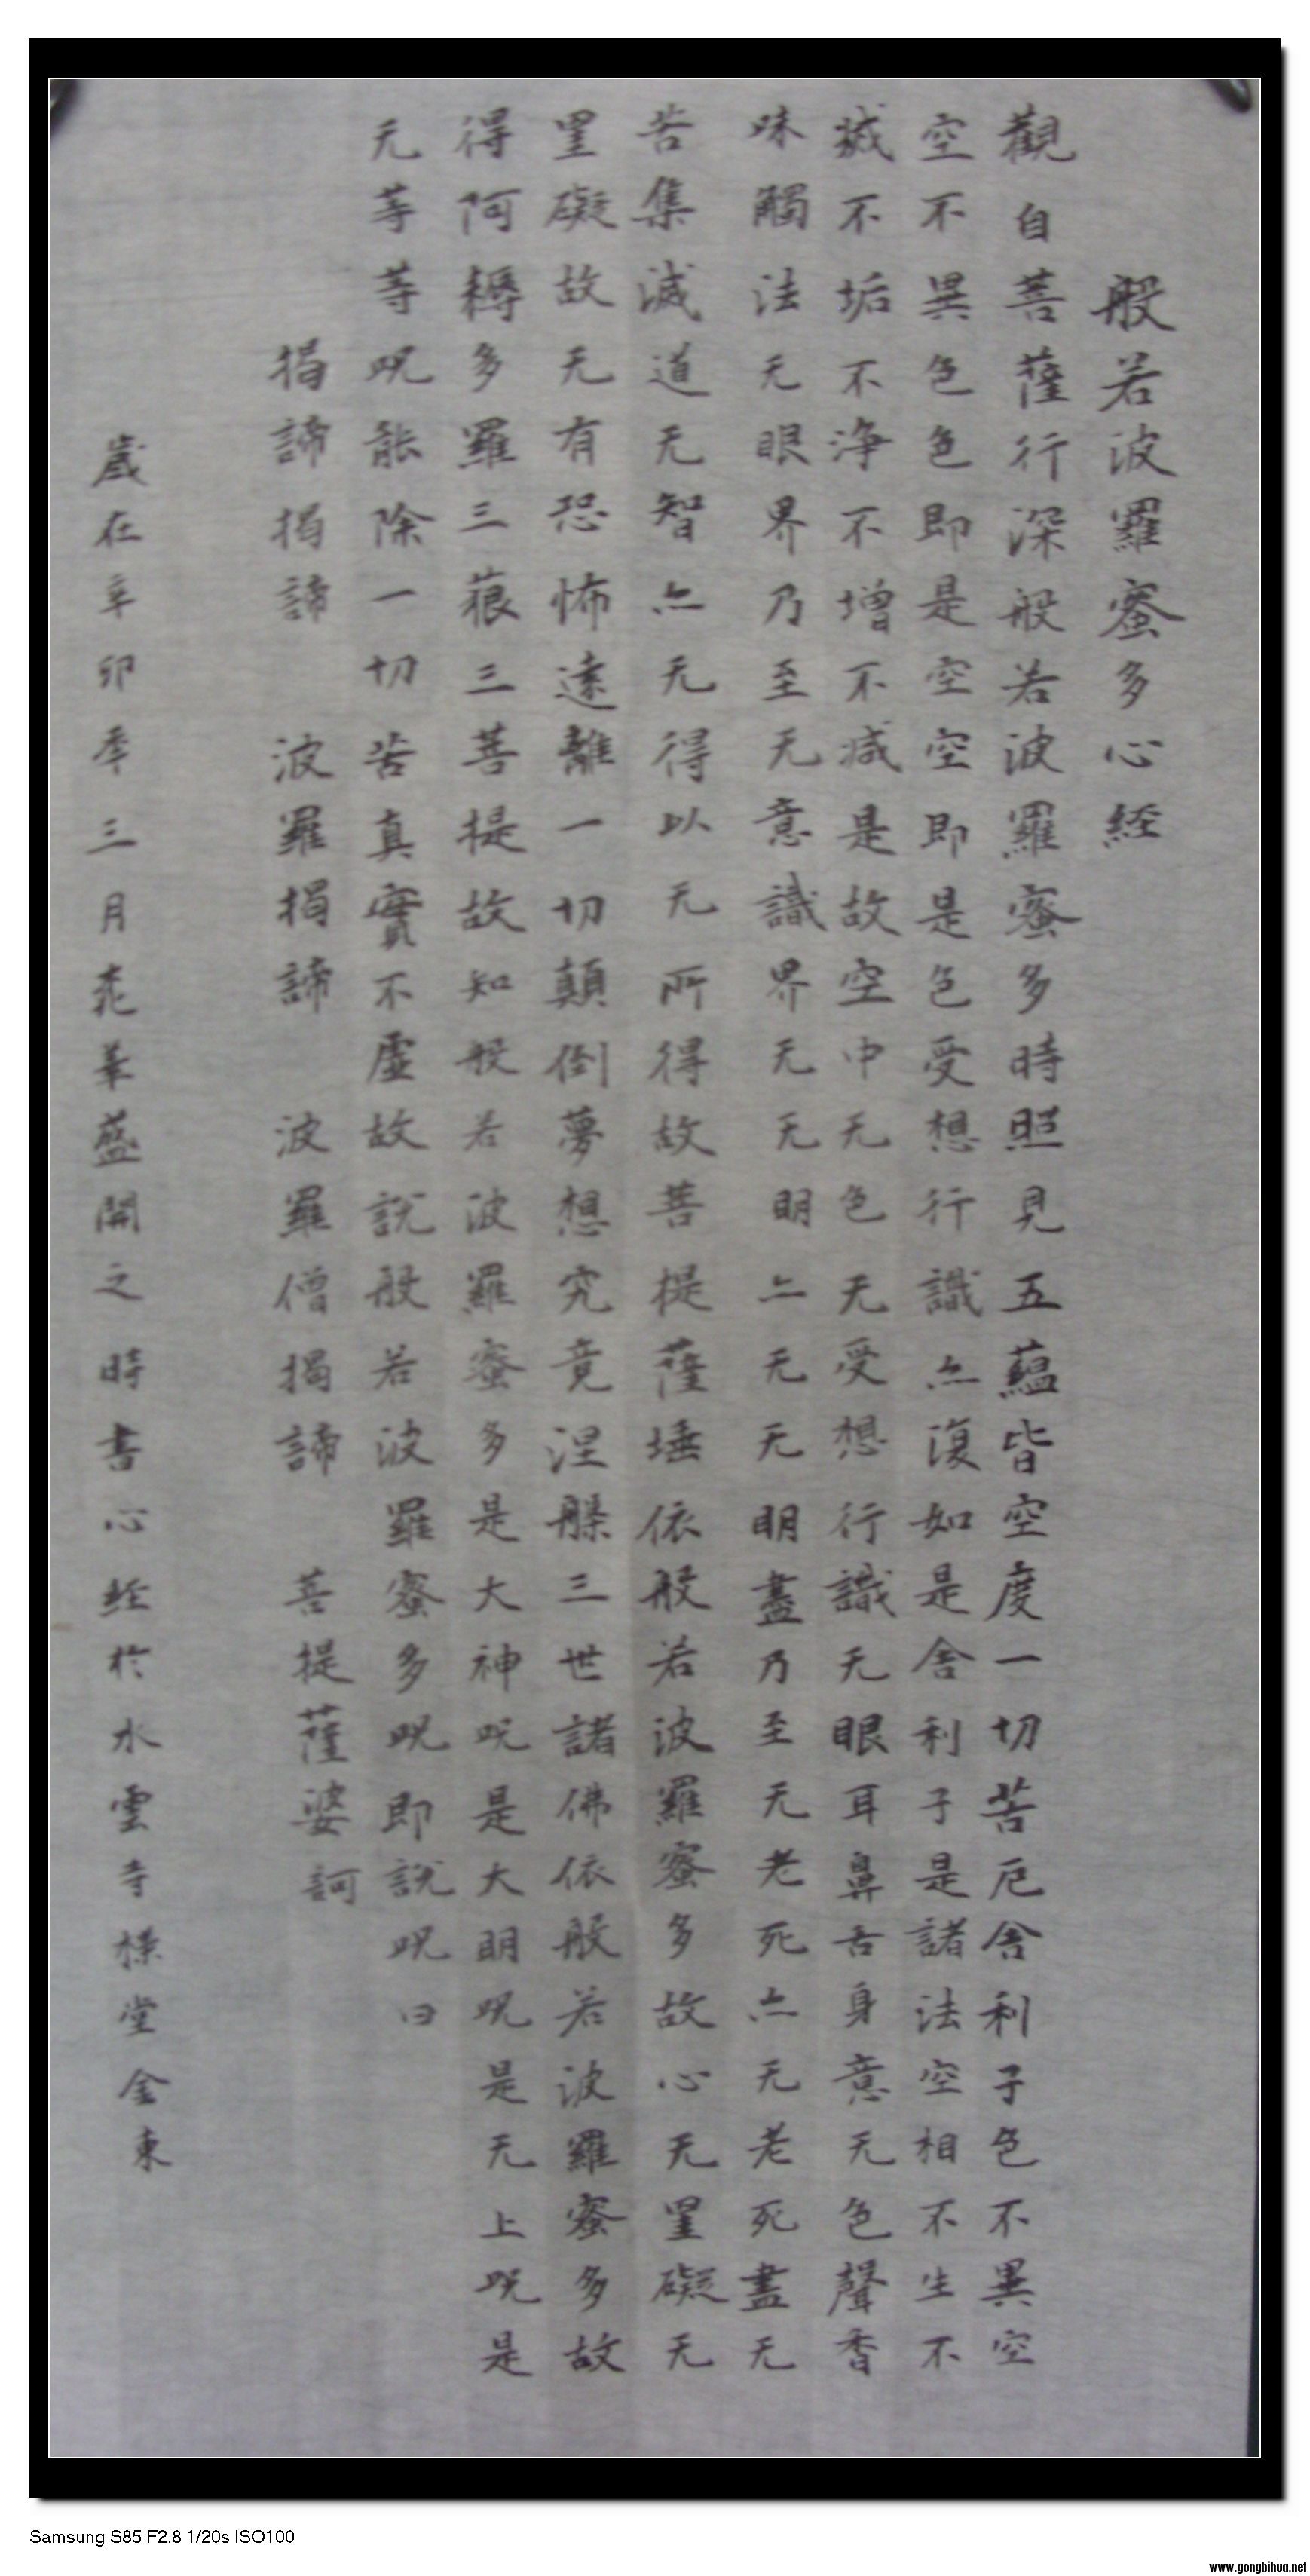 般若波羅蜜多心経
觀自菩薩行深般若波羅蜜多時照見五蘊皆空度一切苦厄舍利子色不異空
空不異色色即是空空即是色受想行識亦復如是舍利子是諸法空相不生不
滅不垢不浄不增不減是故空中无色无受想行識无眼耳鼻舌身意无色聲香
味觸法无眼界乃至无意識界无无明亦无无明盡乃至无老死亦无老死盡无
苦集滅道无智亦无得以无所得故菩提薩埵依般若波羅蜜多故心无罣礙无
罣礙故无有恐怖遠離一切顛倒夢想究竟涅槃三世諸佛依般若波羅蜜多故
得阿耨多羅三藐三菩提故知般若波羅蜜多是大神呪是大明呪是无上呪是
无等等呪能除一切苦真實不虛故說般若波羅蜜多呪即說呪曰
揭諦揭諦 波羅揭諦 波羅僧揭諦 菩提薩婆訶
歲在辛卯年三月華盛開之時書心経於水雲寺堂金東
Samsung S85 F2.8 1/20s ISO100
www.gongbihua.net